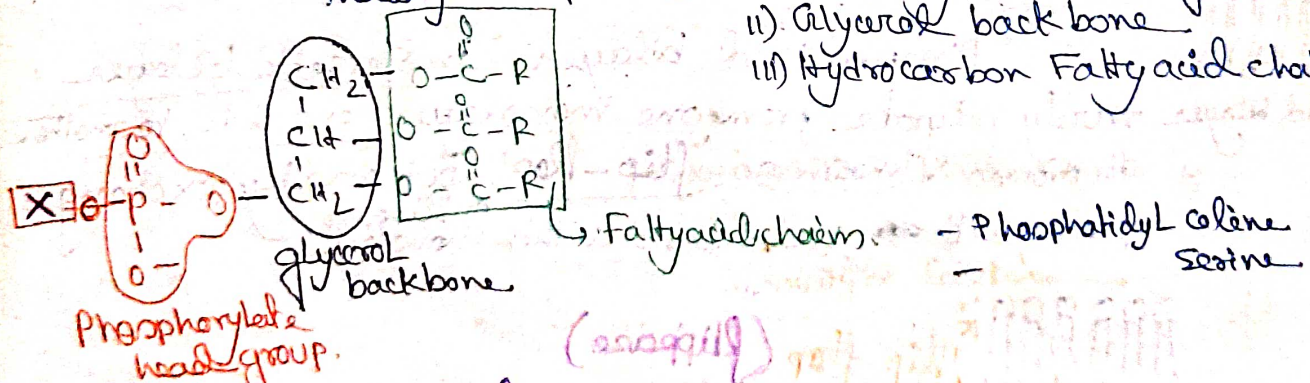 II). Glycerol backbone
III) Hydrocarbon Fatty acid cha
O
CH2 - O-C-R
O
CH - O-C-R
O
CH2 - O-C-R
X O-P-O-
O
O-
glycerol
backbone
Fattyacid chains. - PhosphatidyL Coline
Serine
-
Phosphorylate
head group.